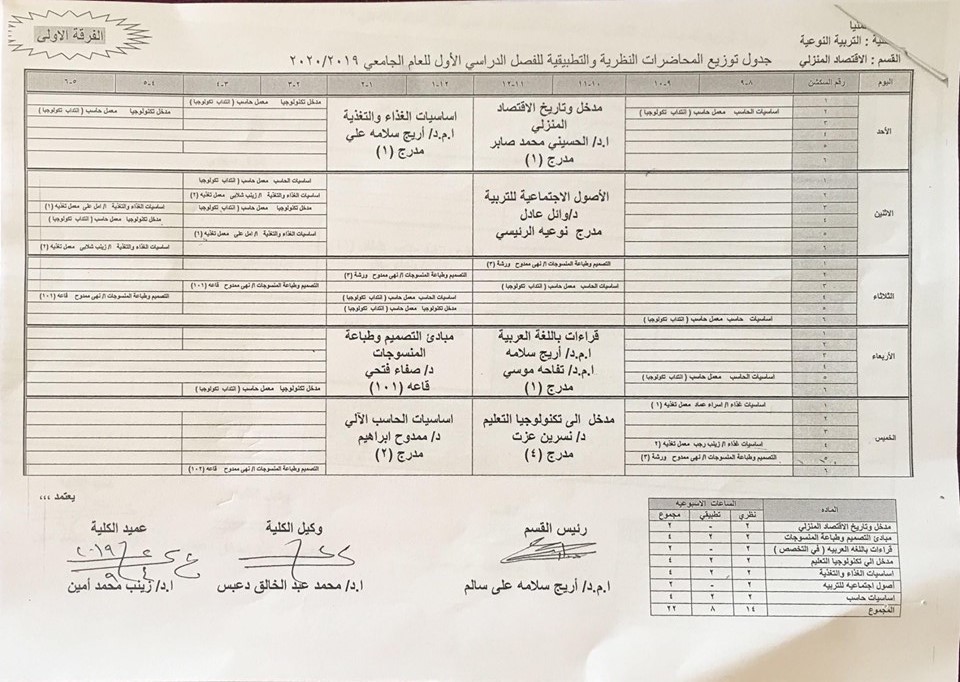 الفرقة الاولى
كلية : التربية النوعية
القسم : الاقتصاد المنزلي
جدول توزيع المحاضرات النظرية والتطبيقية للفصل الدراسي الأول للعام الجامعي ٢٠٢٠/٢٠١٩
اليوم رقم السكشن ٨-٩ ٩-١٠ ١٠-١١ ١١-١٢ ١٢-١ ١-٢ ٢-٣ ٣-٤ ٤-٥ ٥-٦
الأحد
١
٢
٣
٤
٥
٦
اساسيات الحاسب معمل حاسب ( انتداب تكولوجيا )
مدخل وتاريخ الاقتصاد
المنزلي
ا.د/ الحسيني محمد صابر
مدرج (١)
اساسيات الغذاء والتغذية
ا.م.د/ أريج سلامه علي
مدرج (١)
مدخل تكنولوجيا معمل حاسب ( انتداب تكولوجيا )
مدخل تكنولوجيا معمل حاسب ( انتداب تكولوجيا )
الاثنين
١
٢
٣
٤
٥
٦
الأصول الاجتماعية للتربية
د/وائل عادل
مدرج نوعيه الرئيسي
اساسيات الحاسب معمل حاسب ( انتداب تكولوجيا
اساسيات الغذاء والتغذية ا/ زينب شلابى معمل تغذيه (٢)
مدخل تكنولوجيا معمل حاسب ( انتداب تكولوجيا
اساسيات الغذاء والتغذية ا/ امل على معمل تغذيه (١)
مدخل تكنولوجيا معمل حاسب ( انتداب تكولوجيا )
اساسيات الغذاء والتغذية ا/ امل على معمل تغذيه (١)
اساسيات الغذاء والتغذية ا/ زينب شلابى معمل تغذيه (٢)
الثلاثاء
١
٢
٣
٤
٥
٦
التصميم وطباعة المنسوجات ا/ نهى ممدوح ورشة (٣)
التصميم وطباعة المنسوجات ا/ نهى ممدوح ورشة (٣)
اساسيات الحاسب معمل حاسب ( انتداب تكولوجيا )
التصميم وطباعة المنسوجات ا/ نهى ممدوح قاعه (١٠١)
اساسيات الحاسب معمل حاسب ( انتداب تكولوجيا )
التصميم وطباعة المنسوجات ا/ نهى ممدوح قاعه (١٠١)
مدخل تكنولوجيا معمل حاسب ( انتداب تكولوجيا )
اساسيات حاسب معمل حاسب ( انتداب تكولوجيا )
الأربعاء
١
٢
٣
٤
٥
٦
اساسيات الحاسب معمل حاسب ( انتداب تكولوجيا )
قراءات باللغة العربية
ا.م.د/ أريج سلامه
ا.م.د/ تفاحه موسي
مدرج (١)
مبادئ التصميم وطباعة
المنسوجات
د/ صفاء فتحي
قاعه (١٠١)
مدخل تكنولوجيا معمل حاسب ( انتداب تكولوجيا )
الخميس
١
٢
٣
٤
٥
٦
اساسيات غذاء ا/ اسراء عماد معمل تغذيه (١)
اساسيات غذاء ا/ زينب رجب معمل تغذيه (٢
التصميم وطباعة المنسوجات ا/ نهى ممدوح ورشة (٣)
مدخل الى تكنولوجيا التعليم
د/ نسرين عزت
مدرج (٤)
اساسيات الحاسب الآلي
د/ ممدوح ابراهيم
مدرج (٢)
التصميم وطباعة المنسوجات ا/ نهى ممدوح قاعه (١٠٢)
الماده الساعات الاسبوعيه
نظري تطبيقي مجموع
مدخل وتاريخ الاقتصاد المنزلي ٢ - ٢
مبادئ التصميم وطباعة المنسوجات ٢ ٢ ٤
قراءات باللغه العربيه ( في التخصص ) ٢ - ٢
مدخل الي تكنولوجيا التعليم ٢ ٢ ٤
اساسيات الغذاء والتغذية ٢ ٢ ٤
أصول اجتماعيه للتربيه ٢ - ٢
اساسيات حاسب ٢ ٢ ٤
المجموع ١٤ ٨ ٢٢
يعتمد ،،،
رئيس القسم
ا.م.د/ أريج سلامه على سالم
وكيل الكلية
ا.د/ محمد عبد الخالق دعبس
عميد الكلية
٢٠١٩
ا.د/ زينب محمد أمين